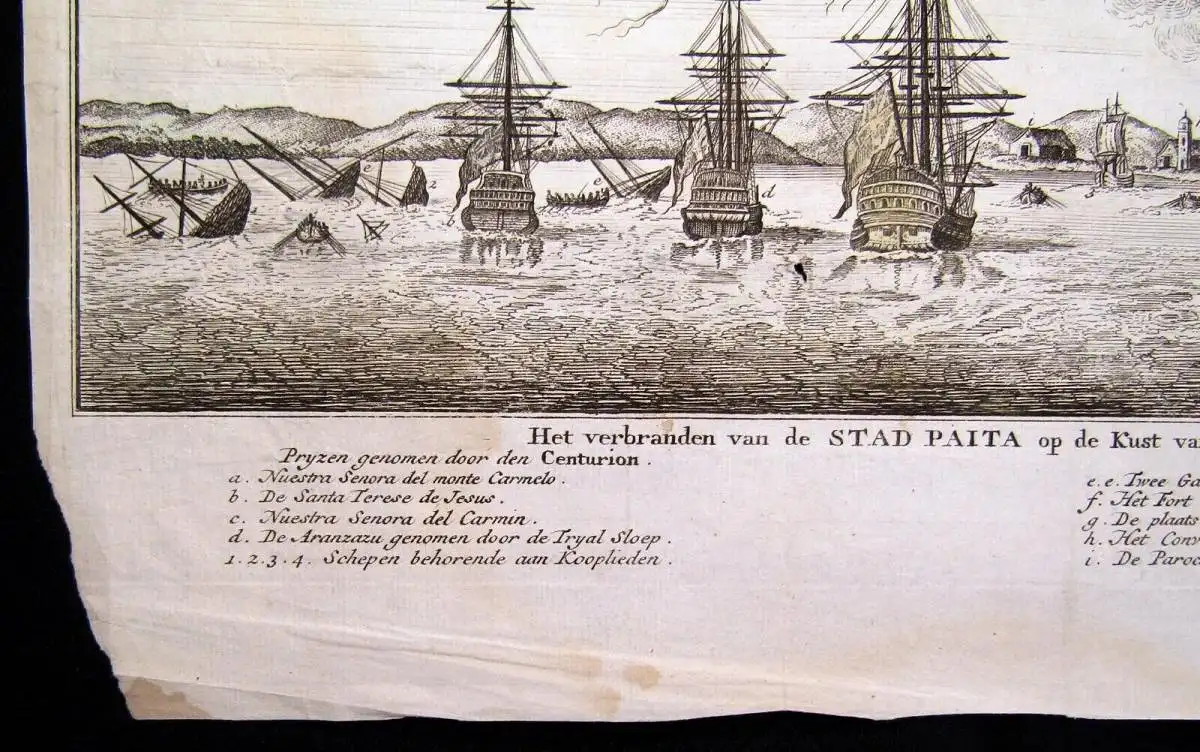 Het verbranden van de STAD PAITA op de Kust va
Pryzen genomen door den Centurion.
a. Nuestra Senora del monte Carmelo.
b. De Santa Terese de Jesus.
c. Nuestra Senora del Carmin.
d. De Aranzazu genomen door de Tryal Sloep.
1.2.3.4. Schepen behorende aan Kooplieden.
e.e. Twee Ga
f. Het Fort
g. De plaats
h. Het Conv
i. De Paroc
e
2
e
d